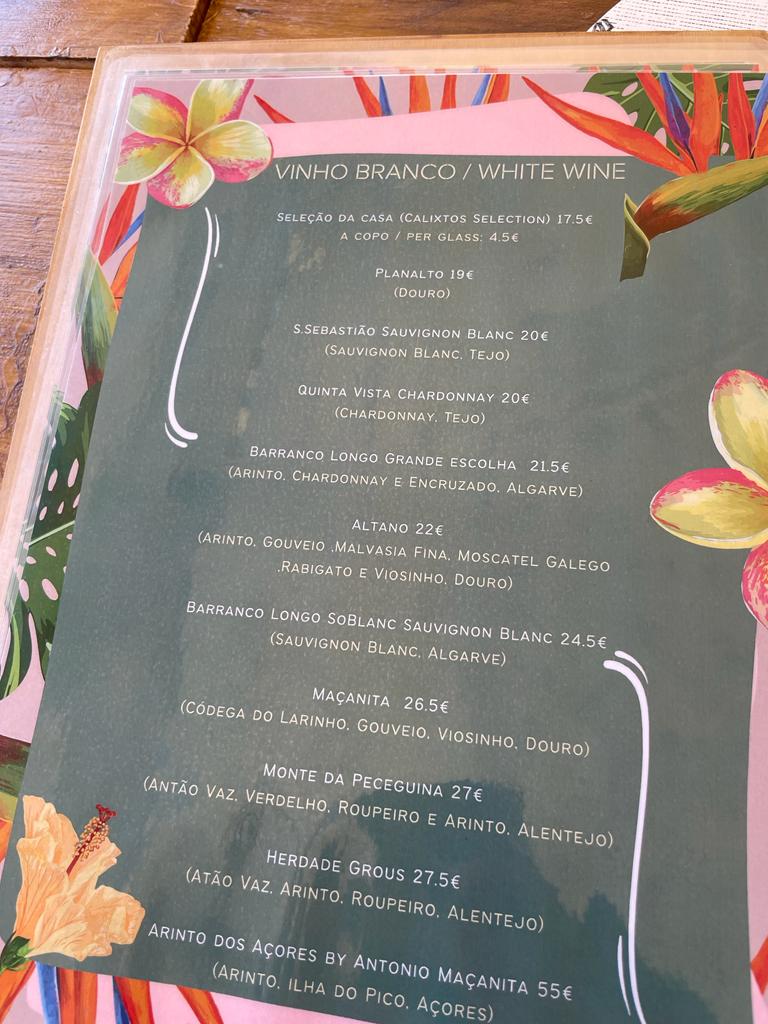 VINHO BRANCO / WHITE WINE
SELEÇÃO DA CASA (CALIXTOS SELECTION) 17.5€
A COPO / PER GLASS: 4.5€
PLANALTO 19€
(DOURO)
S.SEBASTIÃO SAUVIGNON BLANC 20€
(SAUVIGNON BLANC, TEJO)
QUINTA VISTA CHARDONNAY 20€
(CHARDONNAY, TEJO)
BARRANCO LONGO GRANDE ESCOLHA 21.5€
(ARINTO, CHARDONNAY E ENCRUZADO, ALGARVE)
ALTANO 22€
(ARINTO, GOUVEIO ,MALVASIA FINA, MOSCATEL GALEGO
,RABIGATO E VIOSINHO, DOURO)
BARRANCO LONGO SOBLANC SAUVIGNON BLANC 24.5€
(SAUVIGNON BLANC, ALGARVE)
MAÇANITA 26.5€
(CÓDEGA DO LARINHO, GOUVEIO, VIOSINHO, DOURO)
MONTE DA PECEGUINA 27€
(ANTÃO VAZ, VERDELHO, ROUPEIRO E ARINTO, ALENTEJO)
HERDADE GROUS 27.5€
(ATÃO VAZ, ARINTO, ROUPEIRO, ALENTEJO)
ARINTO DOS AÇORES BY ANTONIO MAÇANITA 55€
(ARINTO, ILHA DO PICO, AÇORES)